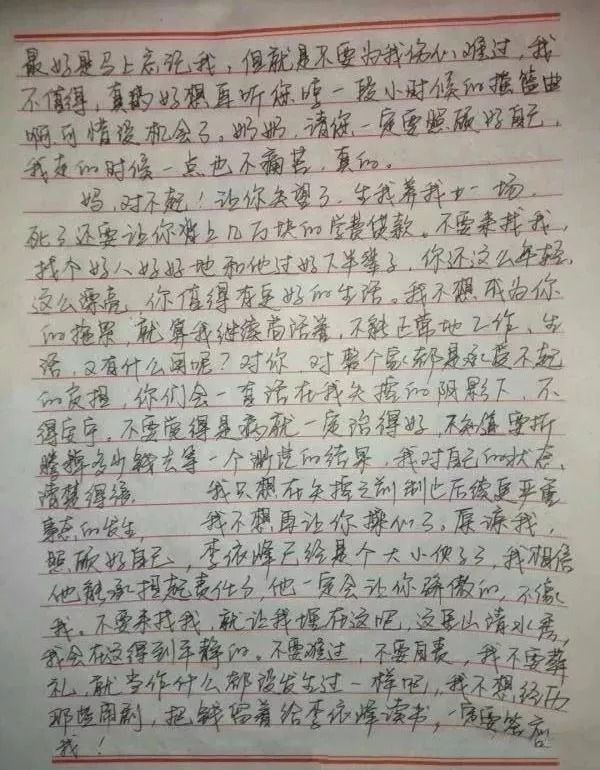 最好是马上忘记我，但就是不要为我伤心难过，我
不值得，真的好想再听你哼一段小时候的摇篮曲
啊可惜没机会了。奶奶，请你一定要照顾好自己，
我走的时候一点也不痛苦，真的。
妈，对不起！让你失望了，生我养我廿一场，
死了还要让你背上几万块的学费贷款。不要来找我，
找个好人好好地和他过好下半辈子，你还这么年轻，
这么漂亮，你值得有更好的生活。我不想成为你
的拖累，就算我继续苟活着，不能正常地工作、生
活，又有什么用呢？对你，对整个家都是承受不起
的负担，你们会一直活在我失控的阴影下，不
得安宁。不要觉得是病就一定治得好，不知道要折
腾掉多少钱去等一个渺茫的结果，我对自己的状态
清楚得很 我只想在失控之前制止后续更严重
事态的发生， 我不想再让你操心了。原谅我，
照顾好自己，李依峰已经是个大小伙子了，我相信
他能承担起责任了，他一定会让你骄傲的，不像
我。不要来找我，就让我埋在这吧，这里山清水秀，
我会在这得到平静的。不要难过，不要自责，我不要葬
礼，就当作什么都没发生过一样吧，我不想经历
那些闹剧，把钱留着给李依峰读书，一定要答应
我！